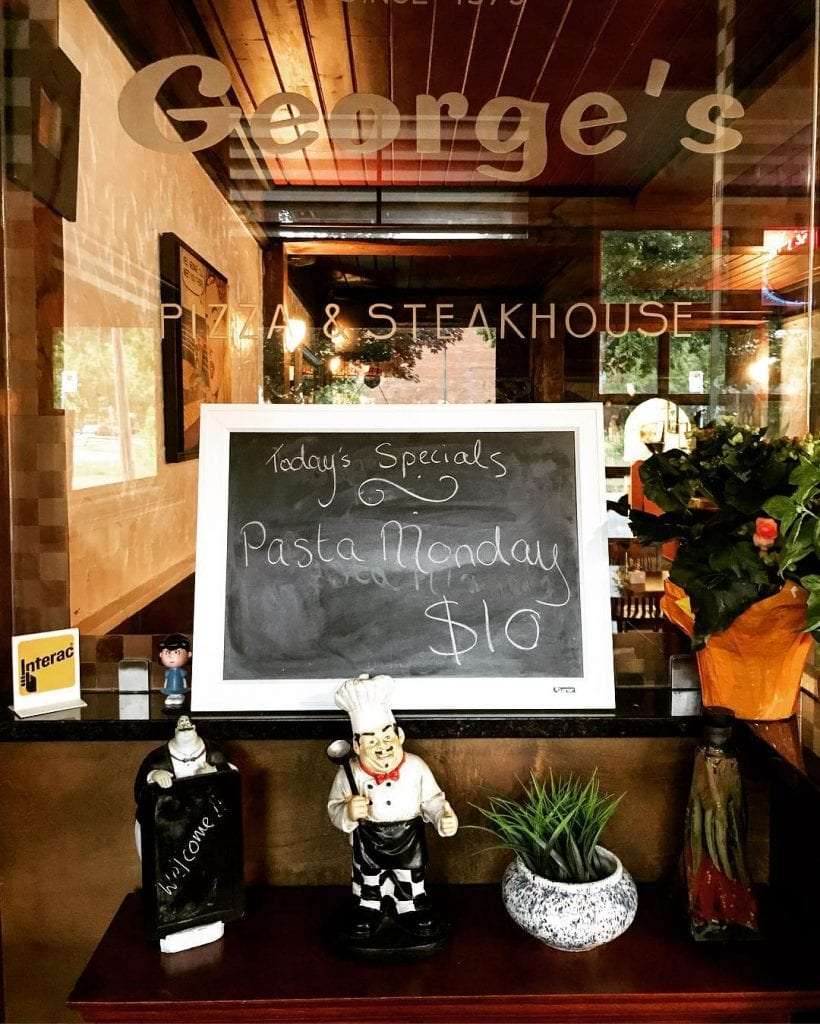 SINCE 1975
George's
PIZZA & STEAKHOUSE
Today's Specials
Pasta Monday
$10
Interac
Welcome!!